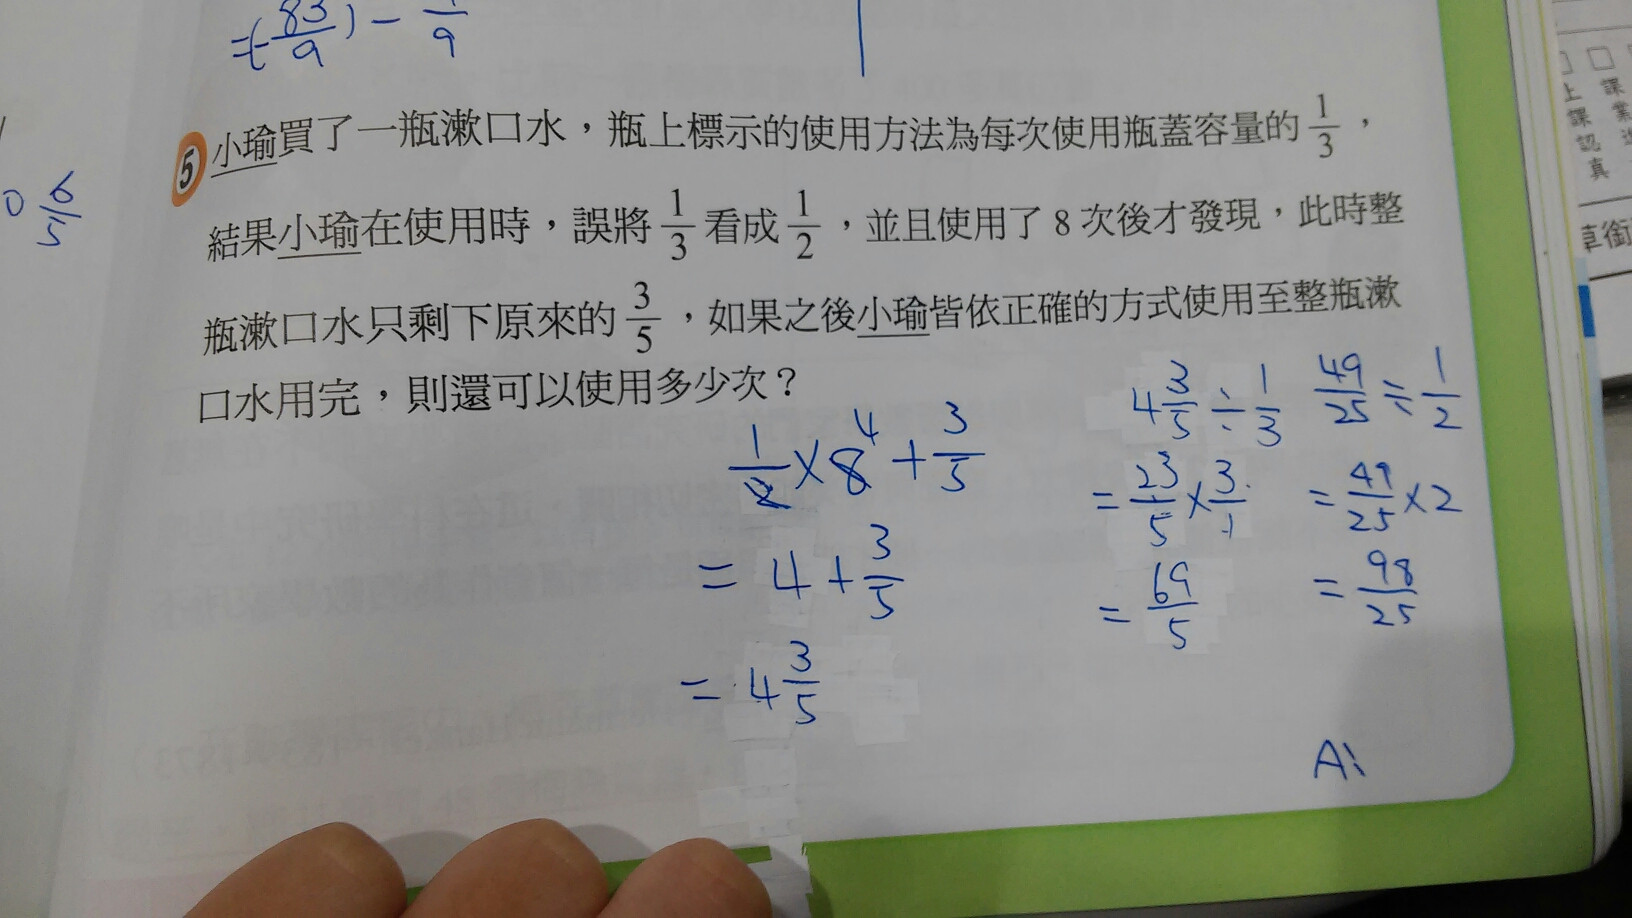 =(-83/9) - /9
0 6/5
5 小瑜買了一瓶漱口水，瓶上標示的使用方法為每次使用瓶蓋容量的 1/3，
結果小瑜在使用時，誤將 1/3 看成 1/2，並且使用了 8 次後才發現，此時整
瓶漱口水只剩下原來的 3/5，如果之後小瑜皆依正確的方式使用至整瓶漱
口水用完，則還可以使用多少次？
1/2×8 4 + 3/5
= 4 + 3/5
= 4 3/5
4 3/5 ÷ 1/3
= 23/5 × 3/1
= 69/5
49/25 ÷ 1/2
= 49/25 × 2
= 98/25
A:
上課認真
課業